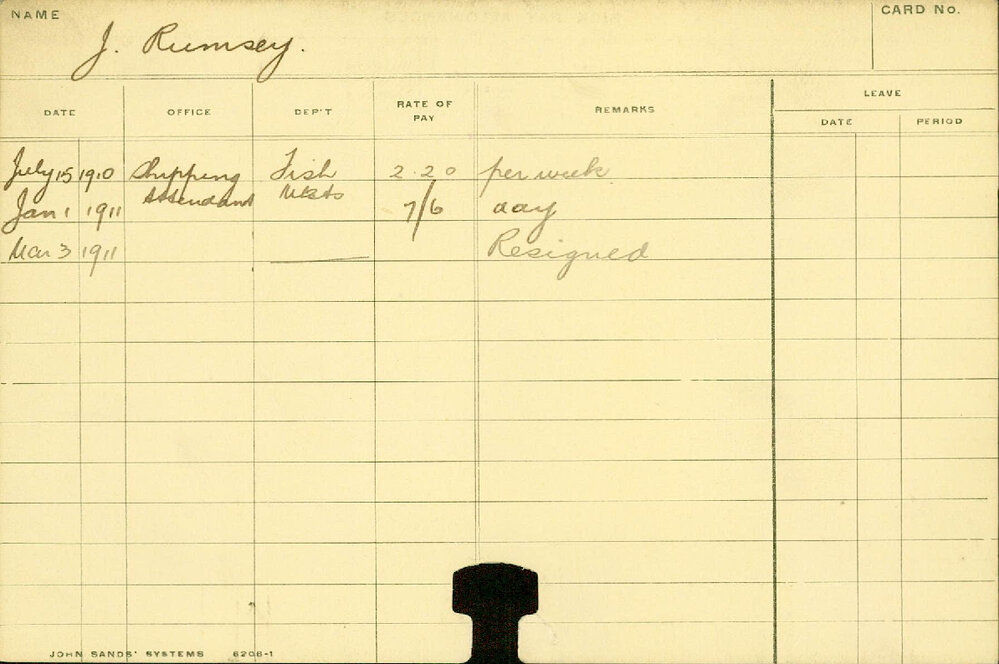 NAME
J. Rumsey.
CARD No.
DATE OFFICE DEP'T RATE OF PAY REMARKS LEAVE
DATE PERIOD
July 15 1910 Shipping Fish 2.2.0 per week
Attendant Mkts
Jan 1 1911 7/6 day
Mar 3 1911 Resigned
JOHN SANDS' SYSTEMS 6206-1